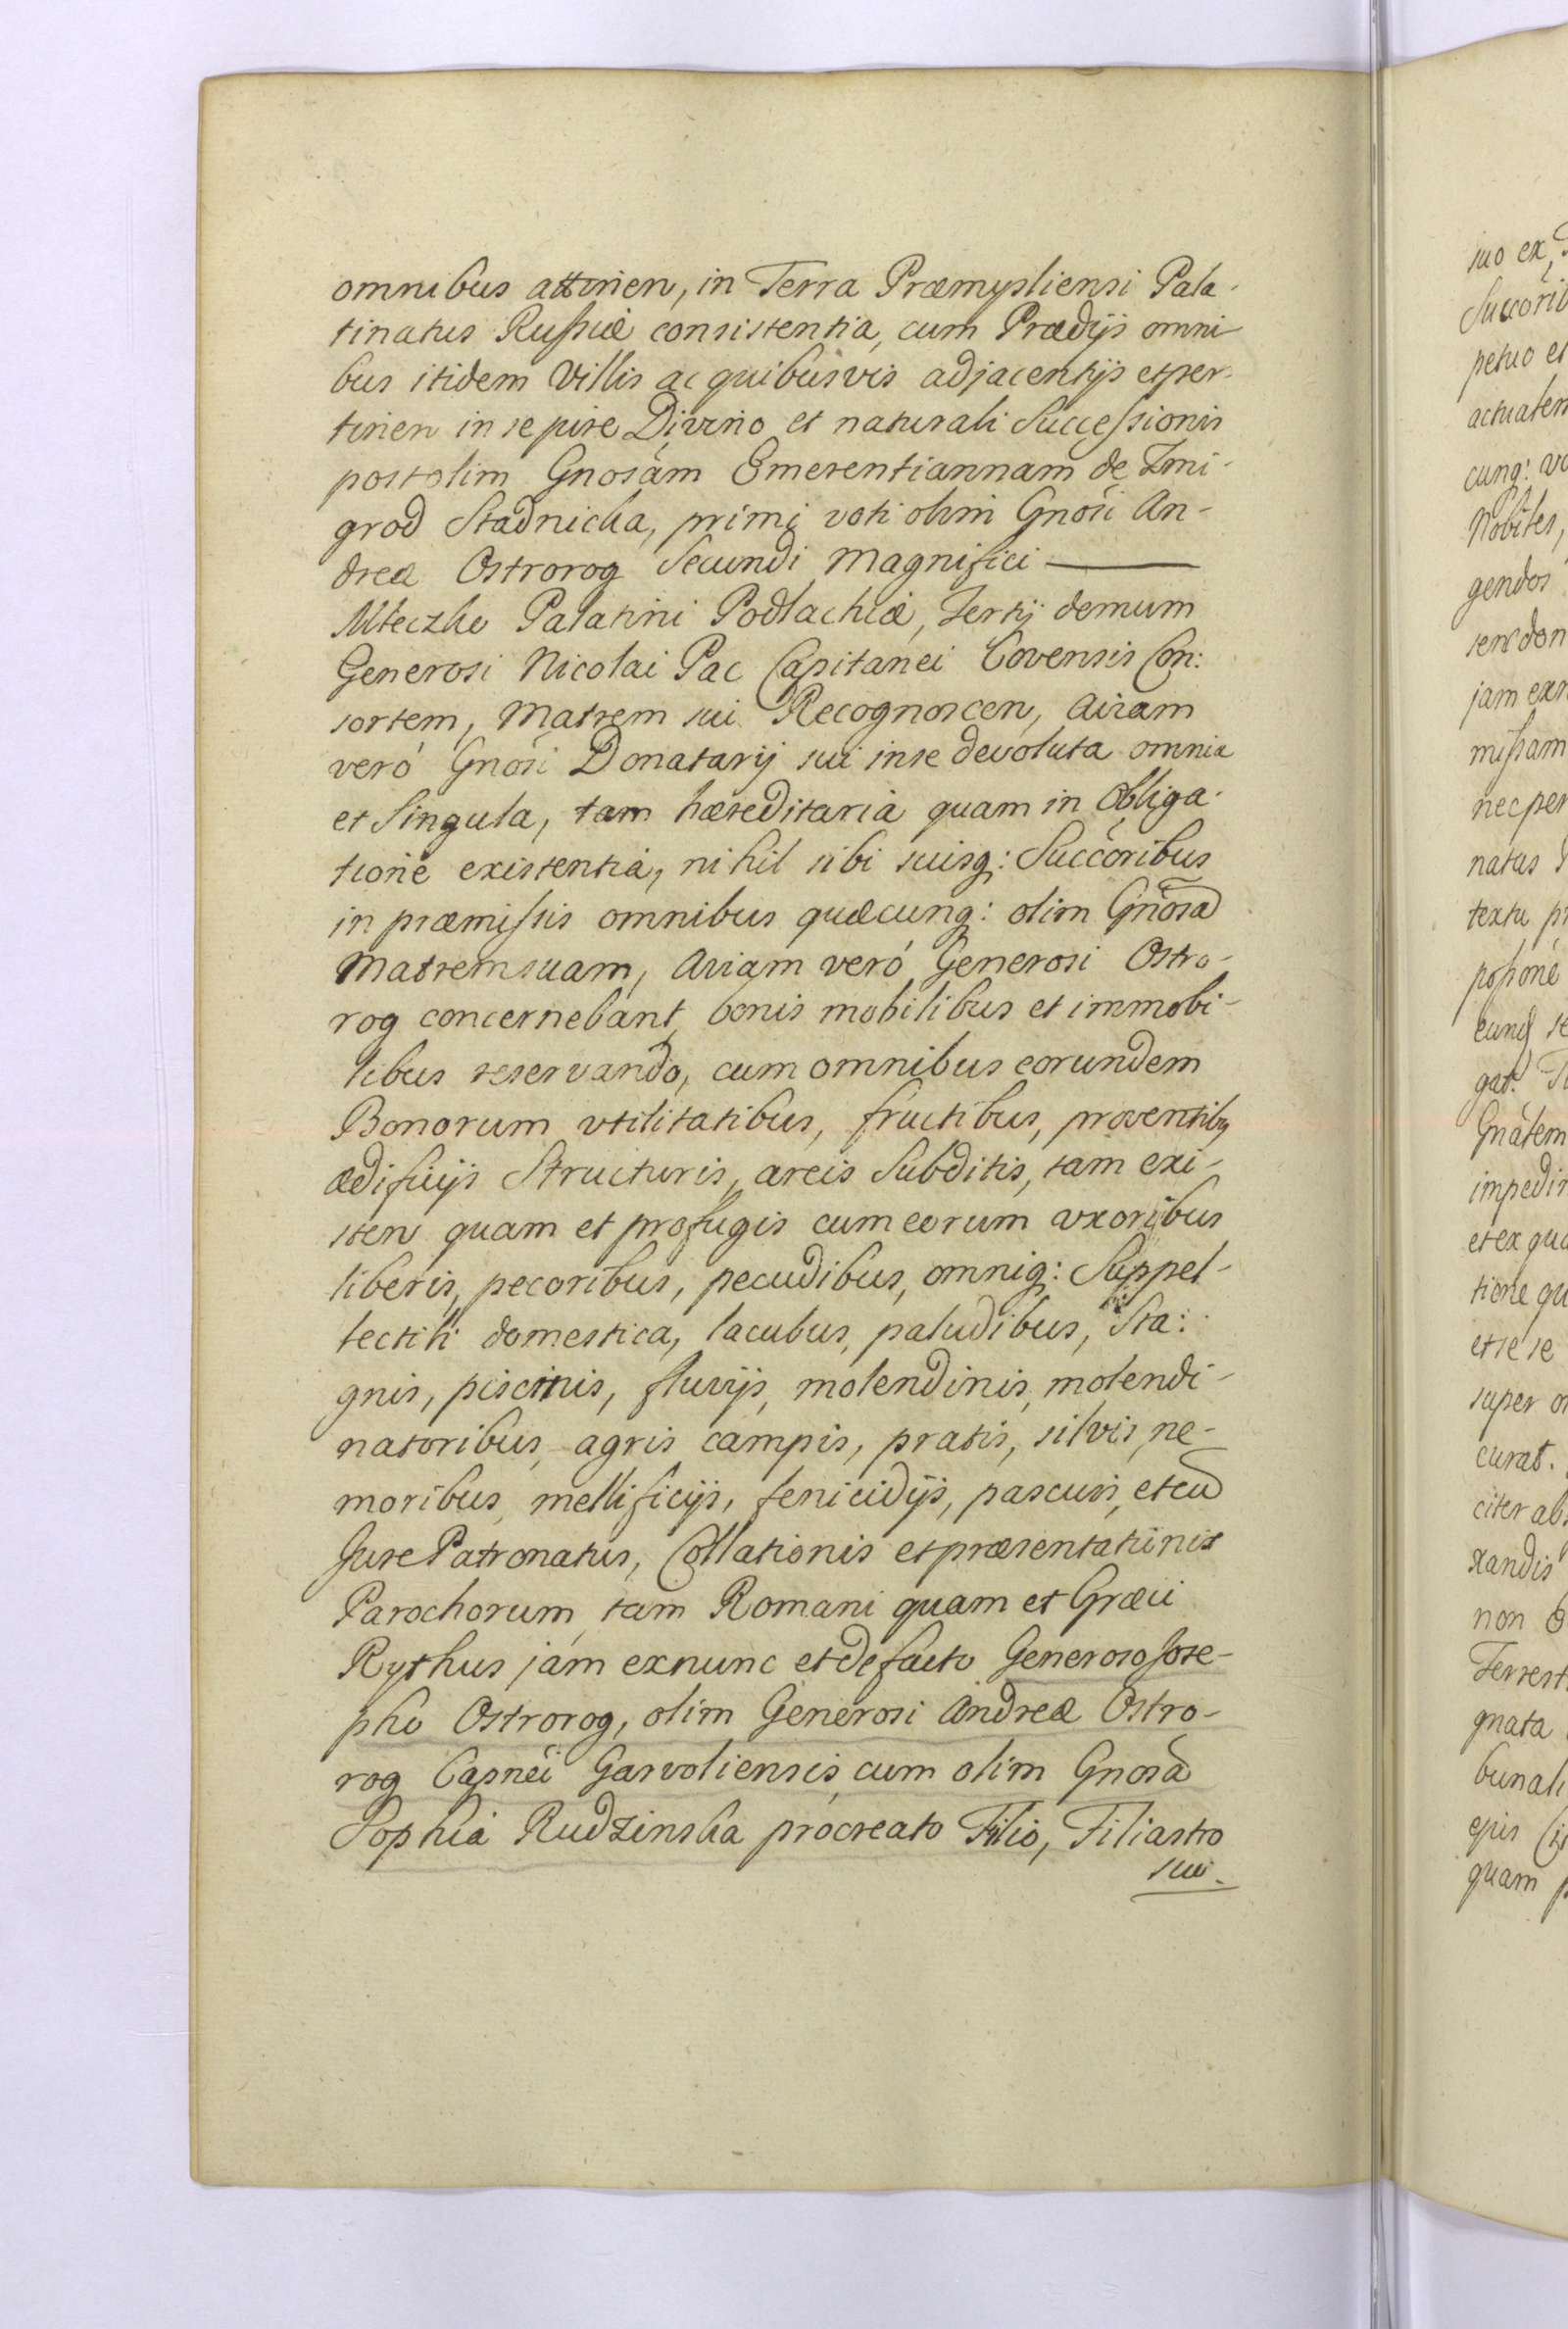 omnibus attinen, in Terra Præmysliensi Pala-
tinatus Russiæ consistentia, cum Prædijs omni
bus itidem Villis ac quibusvis adjacentijs et per-
tinen in se jure Divino et naturali Successionis
post olim Gnosam Emerentiannam de Zmi-
grod Stadnicka, primi voti olim Gnosi An-
dreæ Ostrorog Secundi Magnifici ———
Mleczko Palatini Podlachiæ, Tertij demum
Generosi Nicolai Pac Capitanei Covensis Con:
sortem, Matrem sui Recognoscen, Aviam
veró Gnosi Donatarij sui in se devoluta omnia
et Singula, tam hæreditaria quam in Obliga-
tione existentia, nihil sibi suisq: Succoribus
in præmissis omnibus quæcunq: olim Gnosa
Matrem suam, Aviam veró Generosi Ostro-
rog concernebant, bonis mobilibus et immobi-
libus reservando, cum omnibus eorundem
Bonorum utilitatibus, fructibus, proventibus
ædificijs Structuris, areis Subditis, tam exi-
sten quam et profugis cum eorum uxoribus
liberis, pecoribus, pecudibus, omniq: Suppel-
lectili domestica, lacubus, paludibus, Sta:
gnis, piscinis, fluvijs, molendinis, molendi-
natoribus, agris campis, pratis, silvis, ne-
moribus, mellificijs, fenicidijs, pascuis, et cu
Jure Patronatus, Collationis et præsentationis
Parochorum tam Romani quam et Græci
Rythus jam exnunc et de facto Generoso Jose-
pho Ostrorog, olim Generosi Andreæ Ostro-
rog Capnei Garvoliensis, cum olim Gnosa
Sophia Rudzinska procreato Filio, Filiastro
suo.
suo ex
petuo et
cunq:
Nobiles,
gendos
jam
missam
nec per
natus
textu
gat.
Gnatem
et ex qua
tione
et se se
super
curat.
citer
xandis
non
gnata
bunali
ejus
quam